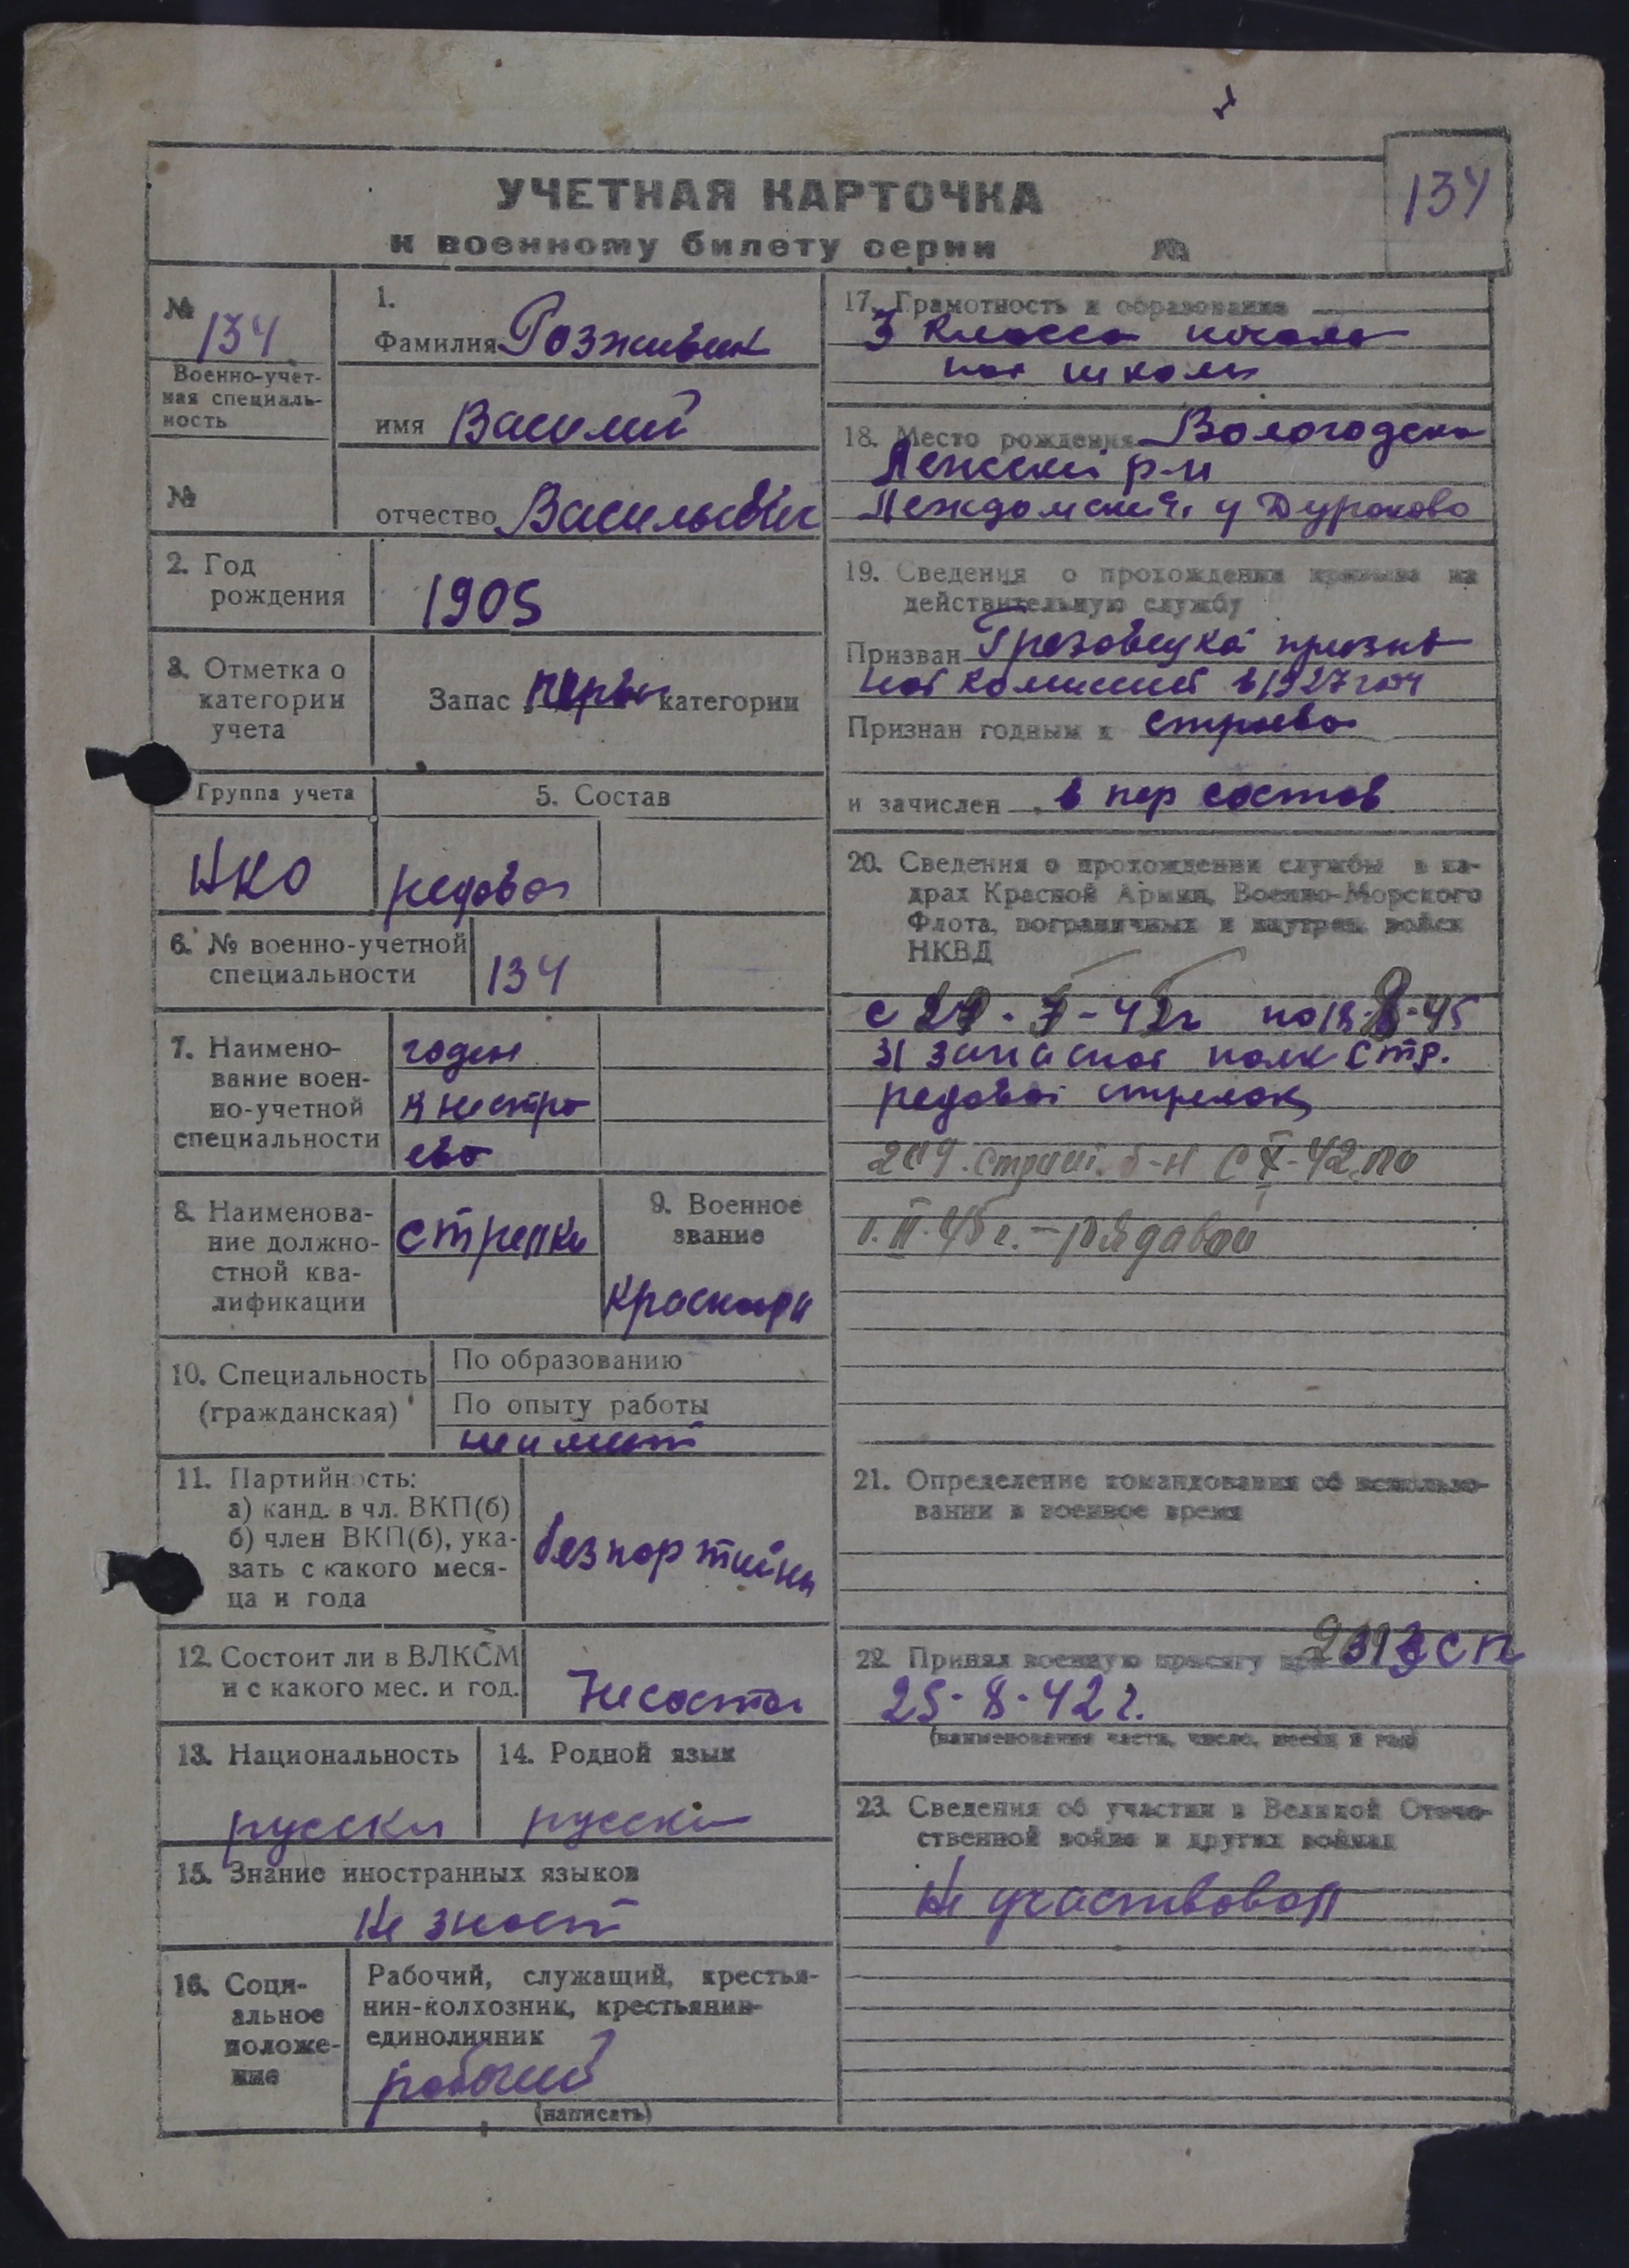 УЧЕТНАЯ КАРТОЧКА
к военному билету серии №
134
№
134
Военно-учет-
ная специаль-
ность
№
1.
Фамилия Розживин
имя Василий
отчество Васильевич
2. Год
рождения
1905
3. Отметка о
категории
учета
Запас перви категории
Группа учета
НКО
5. Состав
редовой
6. № военно-учетной
специальности
134
7. Наимено-
вание воен-
но-учетной
специальности
годен
к нестро
ево
8. Наименова-
ние должно-
стной ква-
лификации
стрелки
9. Военное
звание
красноар
10. Специальность
(гражданская)
По образованию
По опыту работы
неимеет
11. Партийность:
а) канд. в чл. ВКП(б)
б) член ВКП(б), ука-
зать с какого меся-
ца и года
безпартийны
12. Состоит ли в ВЛКСМ
и с какого мес. и год.
Несостои
13. Национальность
русски
14. Родной язык
русски
15. Знание иностранных языков
Не знает
16. Соци-
альное
положе-
ние
Рабочий, служащий, крестья-
нин-колхозник, крестьянин-
единоличник
рабочий
(написать)
17. Грамотность и образование
3 класса начало
ной школы
18. Место рождения Вологодска
р-н
Дураково
19. Сведения о прохождении призыва на
действительную службу
Призван Грезовецкой призыв
ной комиссией в 1927 году
Признан годным к строево
и зачислен в пер состав
20. Сведения о прохождении службы в ка-
драх Красной Армии, Военно-Морского
Флота, пограничных и внутрен. войск
НКВД
с 42г по 18-8-45
31 запасной полк стр.
редовой стрелок
204. строит. б-н с X-42 по
II.45г. - рядавой
21. Определение командования об использо-
вании в военное время
22. Принял военную присягу при ЗСП
25-8-42г.
(наименование части, число, месяц и год)
23. Сведения об участии в Великой Отече-
ственной войне и других войнах
Не участвовал